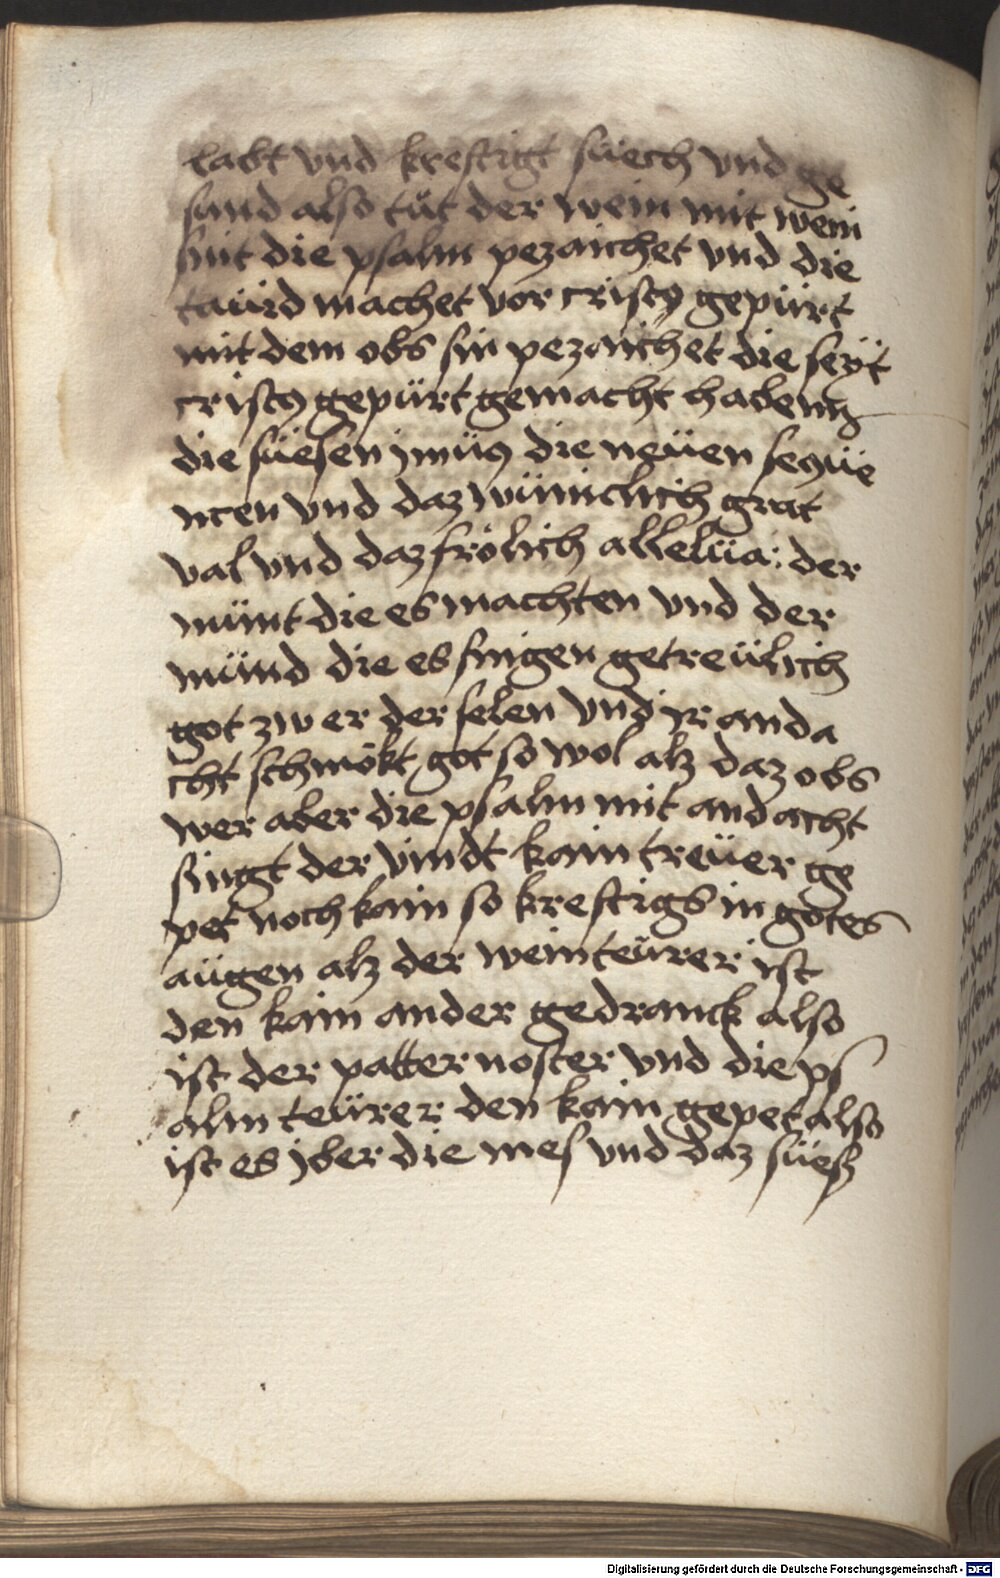 labt vnd kreftigt süech vnd ge
sund also tüt der wein mit wein
sint die psalm pezaichet vnd die
taüid machet vor cristy gepürt
mit dem obs sin pezaichet die seÿt
cristy gepürt gemacht haben
die süesen jmüs die neüen seqüe
ncen vnd daz wüniclich grat
val vnd daz frölich allelüa: der
münt die es machten vnd der
münd die es singen getreülich
got zw er der selen vnd jr anda
cht schmökt got so wol alz daz obs
wer aber die psalm mit andacht
singt der vindt kain treüer ge
pet noch kain so kreftigs in gotes
aügen alz der wein teürer ist
den kain ander gedranck also
ist der patter noster vnd die ps
alm teürer den kain gepet also
ist es jber die mes vnd daz süeß
Digitalisierung gefördert durch die Deutsche Forschungsgemeinschaft - DFG